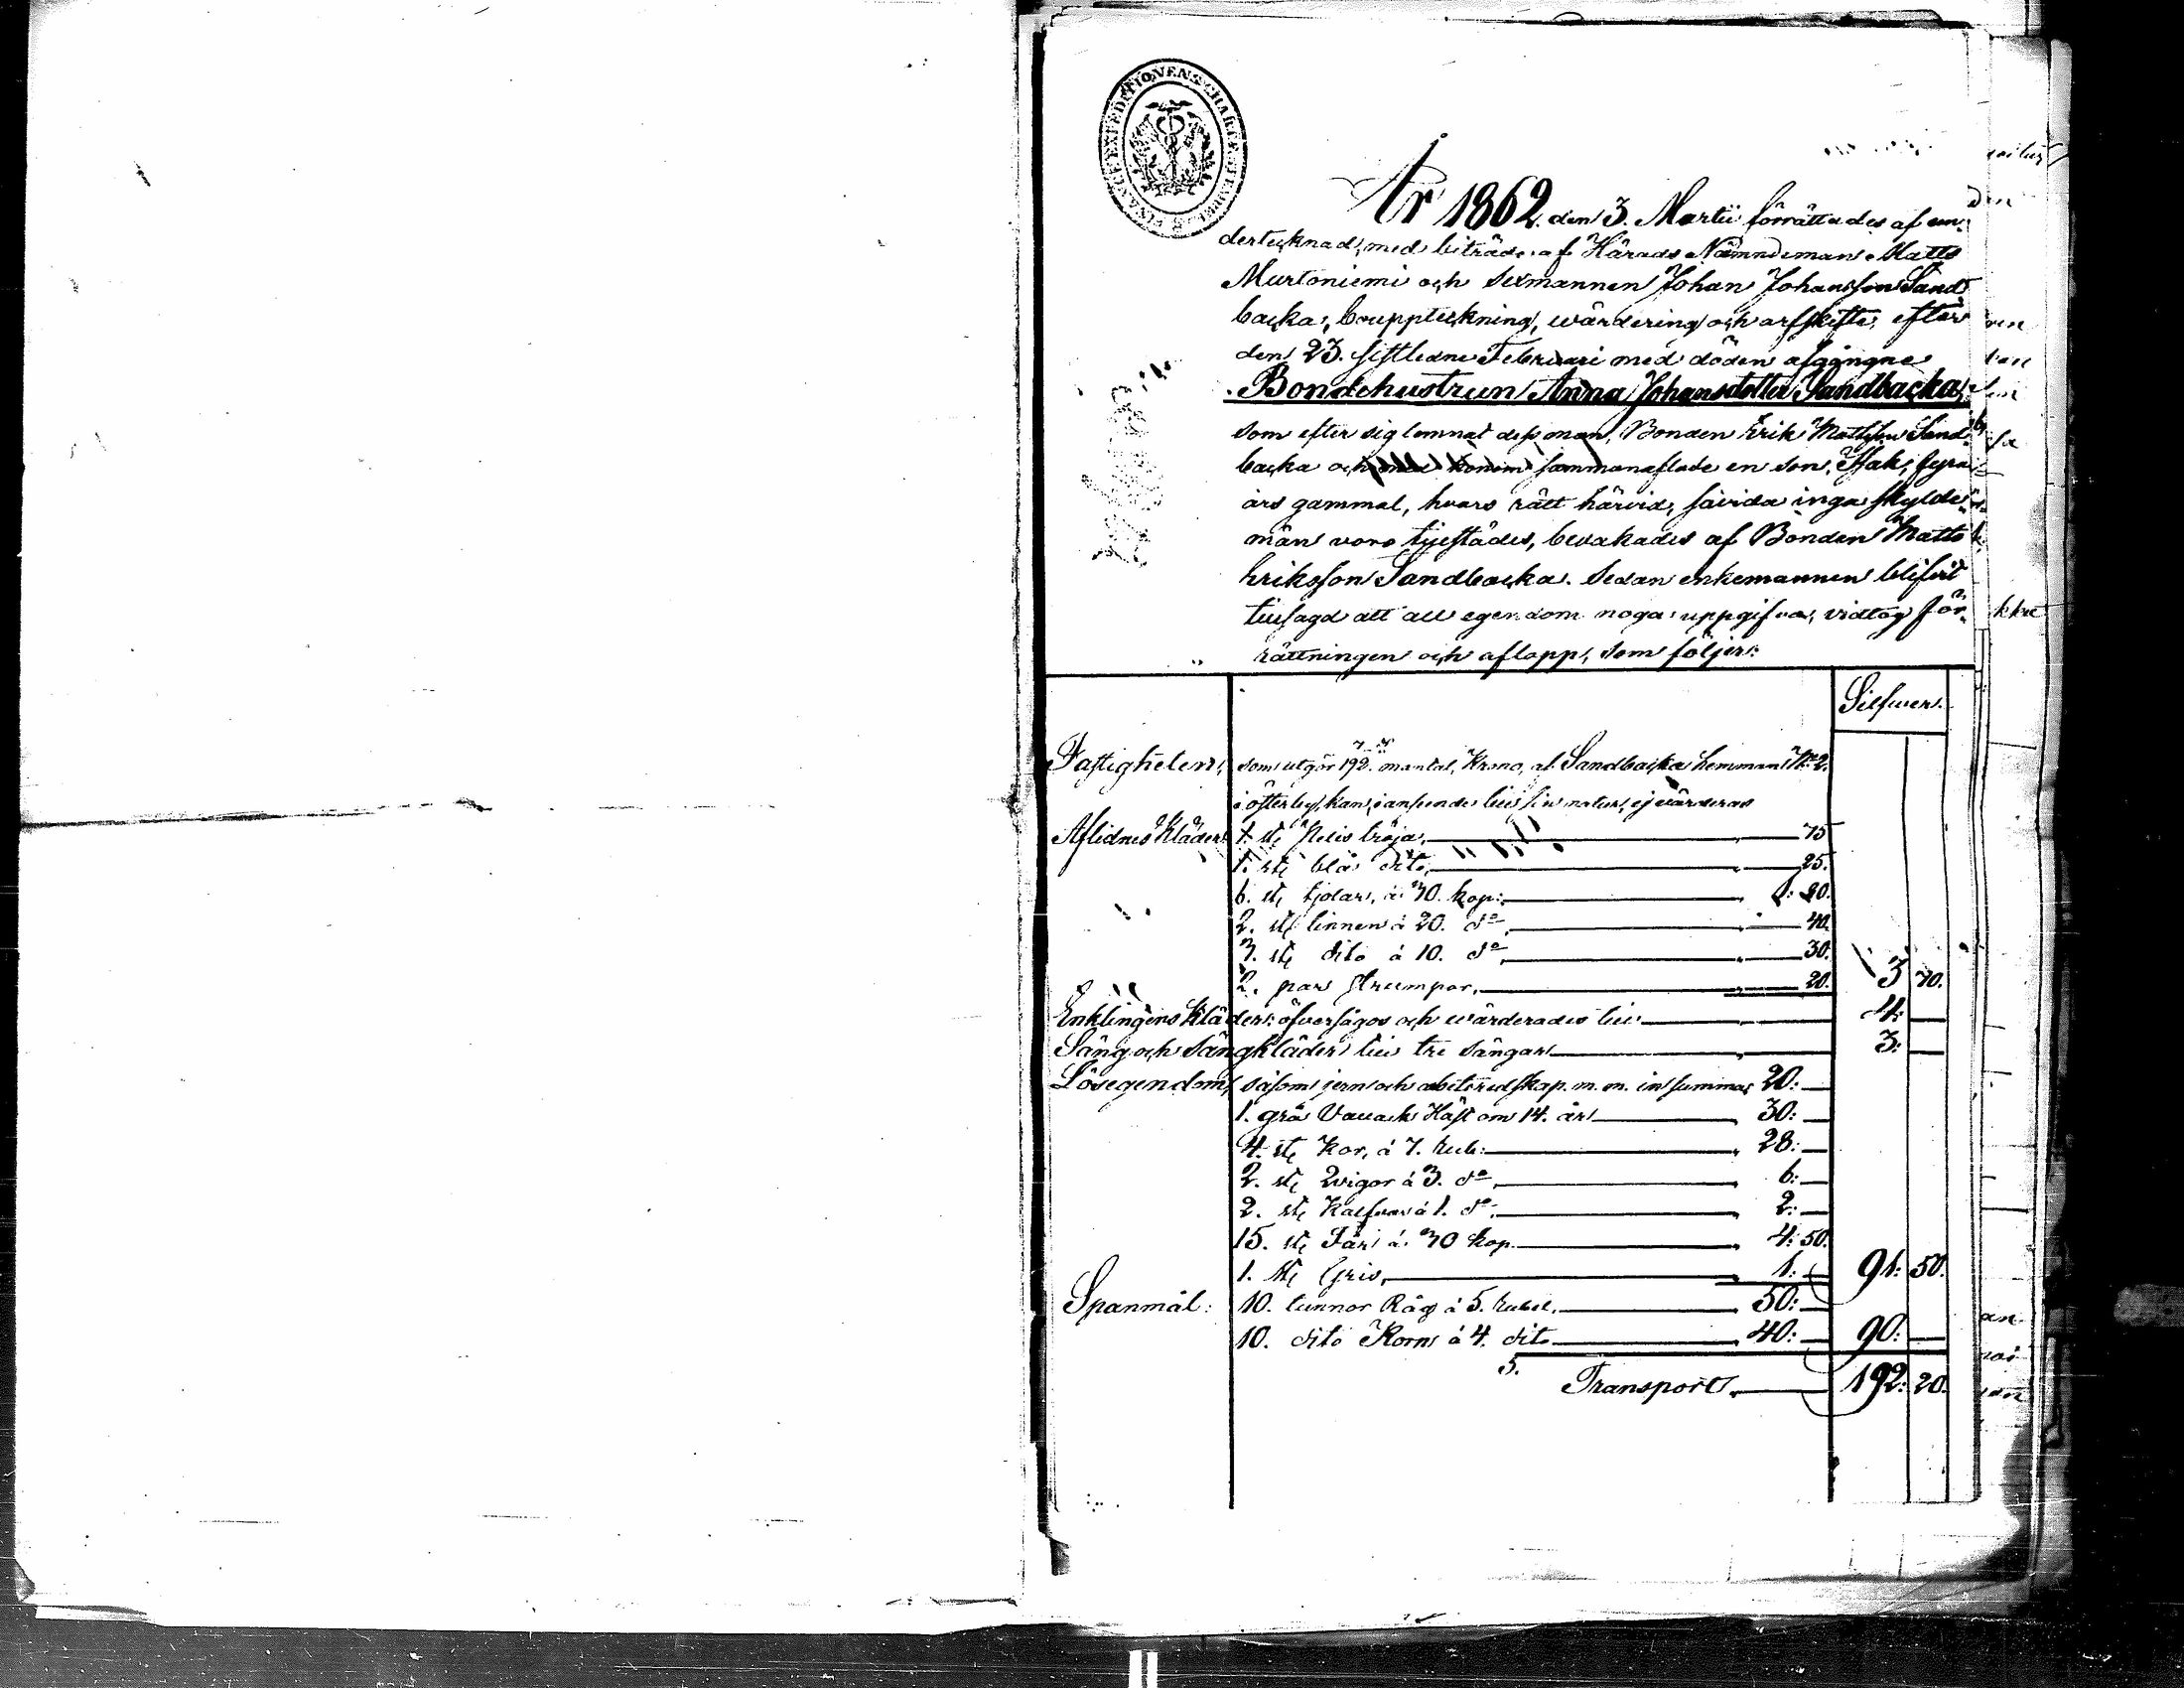 FINANCE EXPEDITIONENS CHARTÆ STEMPEL
År 1862. den 3. Martii förrättades af un-
dertecknad, med biträde af Härads Nämndeman Matts
Murtoniemi och Sexmannen Johan Johansson Sand
backa, bouppteckning, wärdering och arfskifte, efter
den 23. sistledne Februari med döden afgångne
Bondehustrun Anna Johansdotter Sandbacka,
som efter sig lemnat dess man, Bonden Erik Mattsson Sand-
backa och med honom sammanaflade en son, Isak, fyra
års gammal, hvars rätt härvid, såvida inga skylde-
män voro tillstädes, bevakades af Bonden Matts
Eriksson Sandbacka. Sedan enkemannen blifvit
tillsagd att all egendom noga uppgifva, vidtog för-
rättningen och aflopp, som följer:
Silfwer.
Fastigheten, som utgör 192. mantal, Krono, af Sandbacka hemman No 2.
i Öfterby, kan, i anseende till sin natur, ej wärderas
Aflidnes Kläder: 1. st. tröja, 75
1. st. blå dito, 25.
6. st. kjolar, à 30. kop: 1: 80.
2. st. linnen à 20. do 40.
3. st. dito à 10. do 30.
2. par strumpor, 20. 3 70.
Enklingens Kläder: öfversågos och wärderades till 4:
Säng och sängkläder till tre sängar 3:
Lösegendom, såsom jern och arbetsredskap. m. m. in summa 20:
1. grå Vallack Häst om 14. år 30:
4. st. Kor, à 7. Rub: 28:
2. st. Qvigor à 3. do 6:
2. st. Kalfvar à 1. do 2:
15. st. Får à 30 kop. 4: 50.
1. st. Gris, 1: 91: 50.
Spanmål: 10. tunnor Råg à 5. Rubel. 50:
10. dito Korn à 4. dito 40: 90:
S.
Transport. 192: 20.